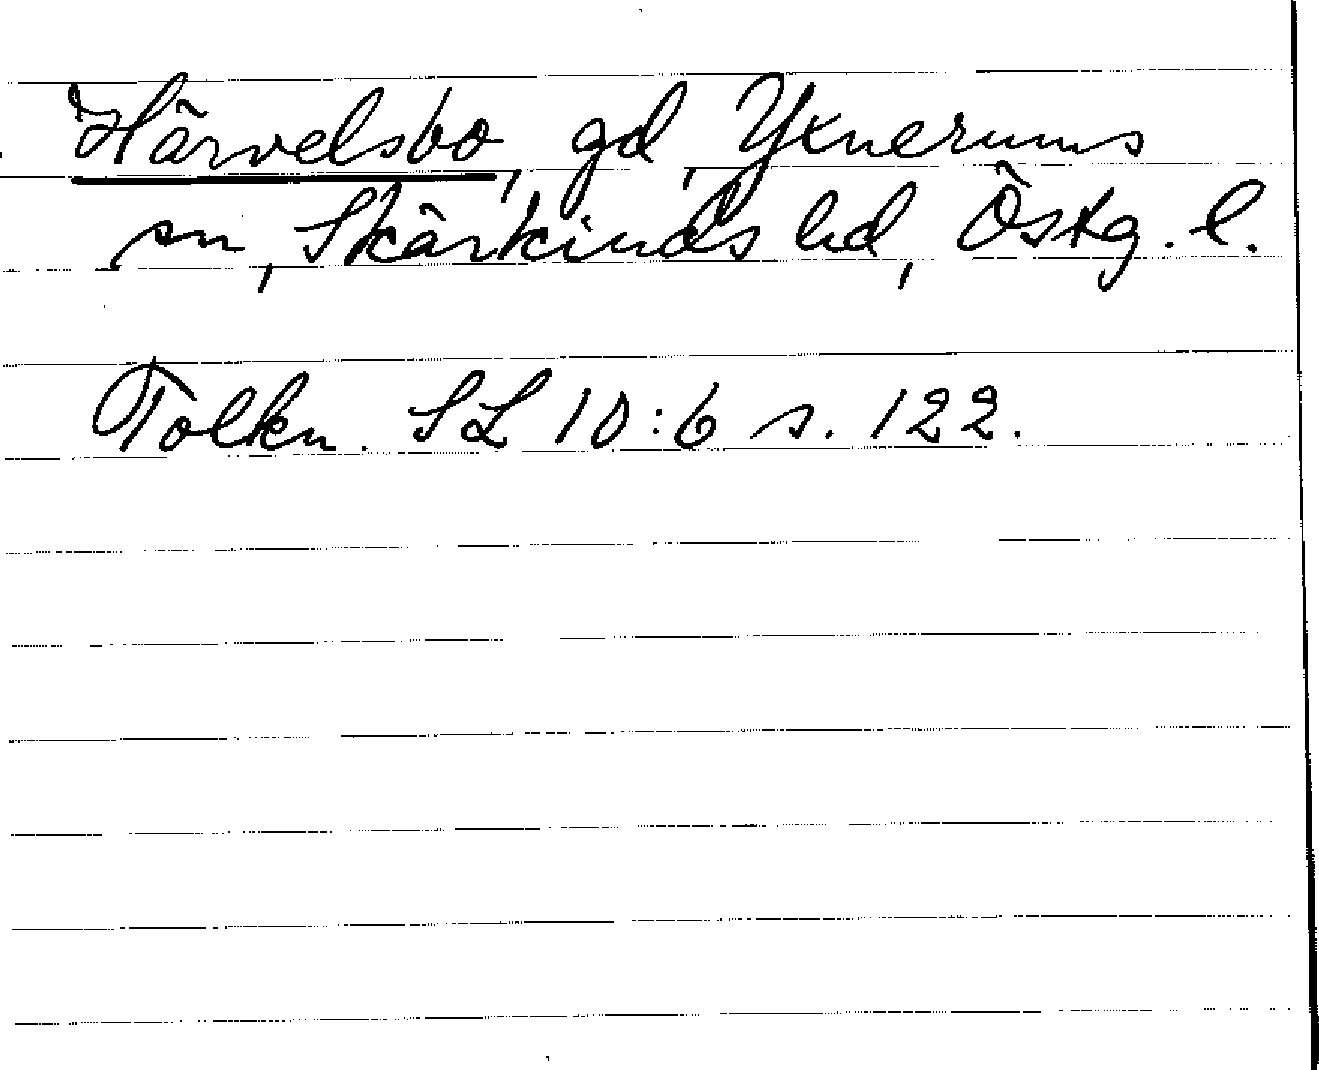 Härvelsbo, gd, Yxnerums
sn, Skärkinds hd, Östg. l.
Tolkn. SL 10:6 s. 122.